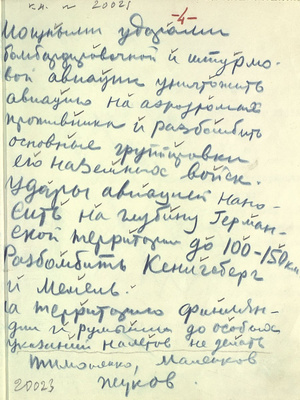 к.п. № 20023
-4-
Мощными ударами
бомбардировочной и штурмо-
вой авиации уничтожить
авиацию на аэродромах
противника и разбомбить
основные группировки
его наземных войск.
Удары авиацией нано-
сить на глубину Герман-
ской территории до 100-150 км
Разбомбить Кенигсберг
и Мемель.
На территорию Финлян-
дии и Румынии до особых
указаний налетов не делать
Тимошенко, Маленков
Жуков
20023